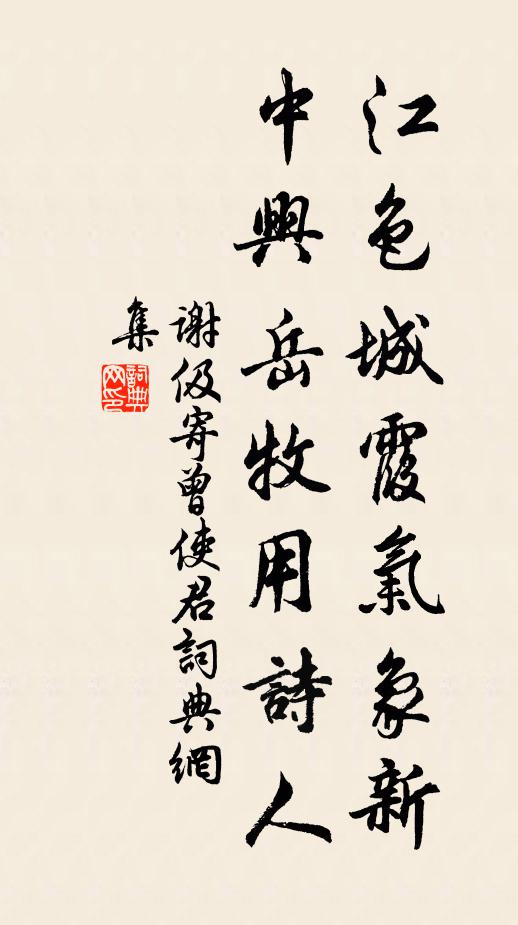 江色城霞氣象新
中興岳牧用詩人
謝伋寄曾使君詞典網
集
詞典
网印